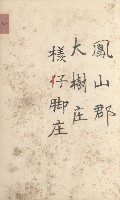 鳳山郡
大樹庄
樣仔脚庄